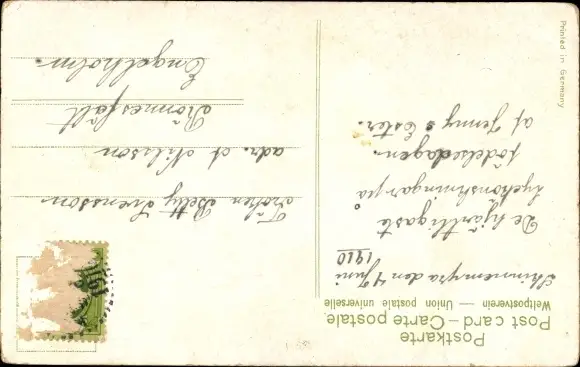 Postkarte
Post card – Carte postale
Weltpostverein — Union postale universelle
Skinnemyra den 4 Juni
1910
De hjärtligaste
lyckönskningar på
födelsedagen.
af Jenny o Ester.
Fröken Betty Svensson
adr. A Nilsson
Rönnesfält
Engelholm.
Printed in Germany